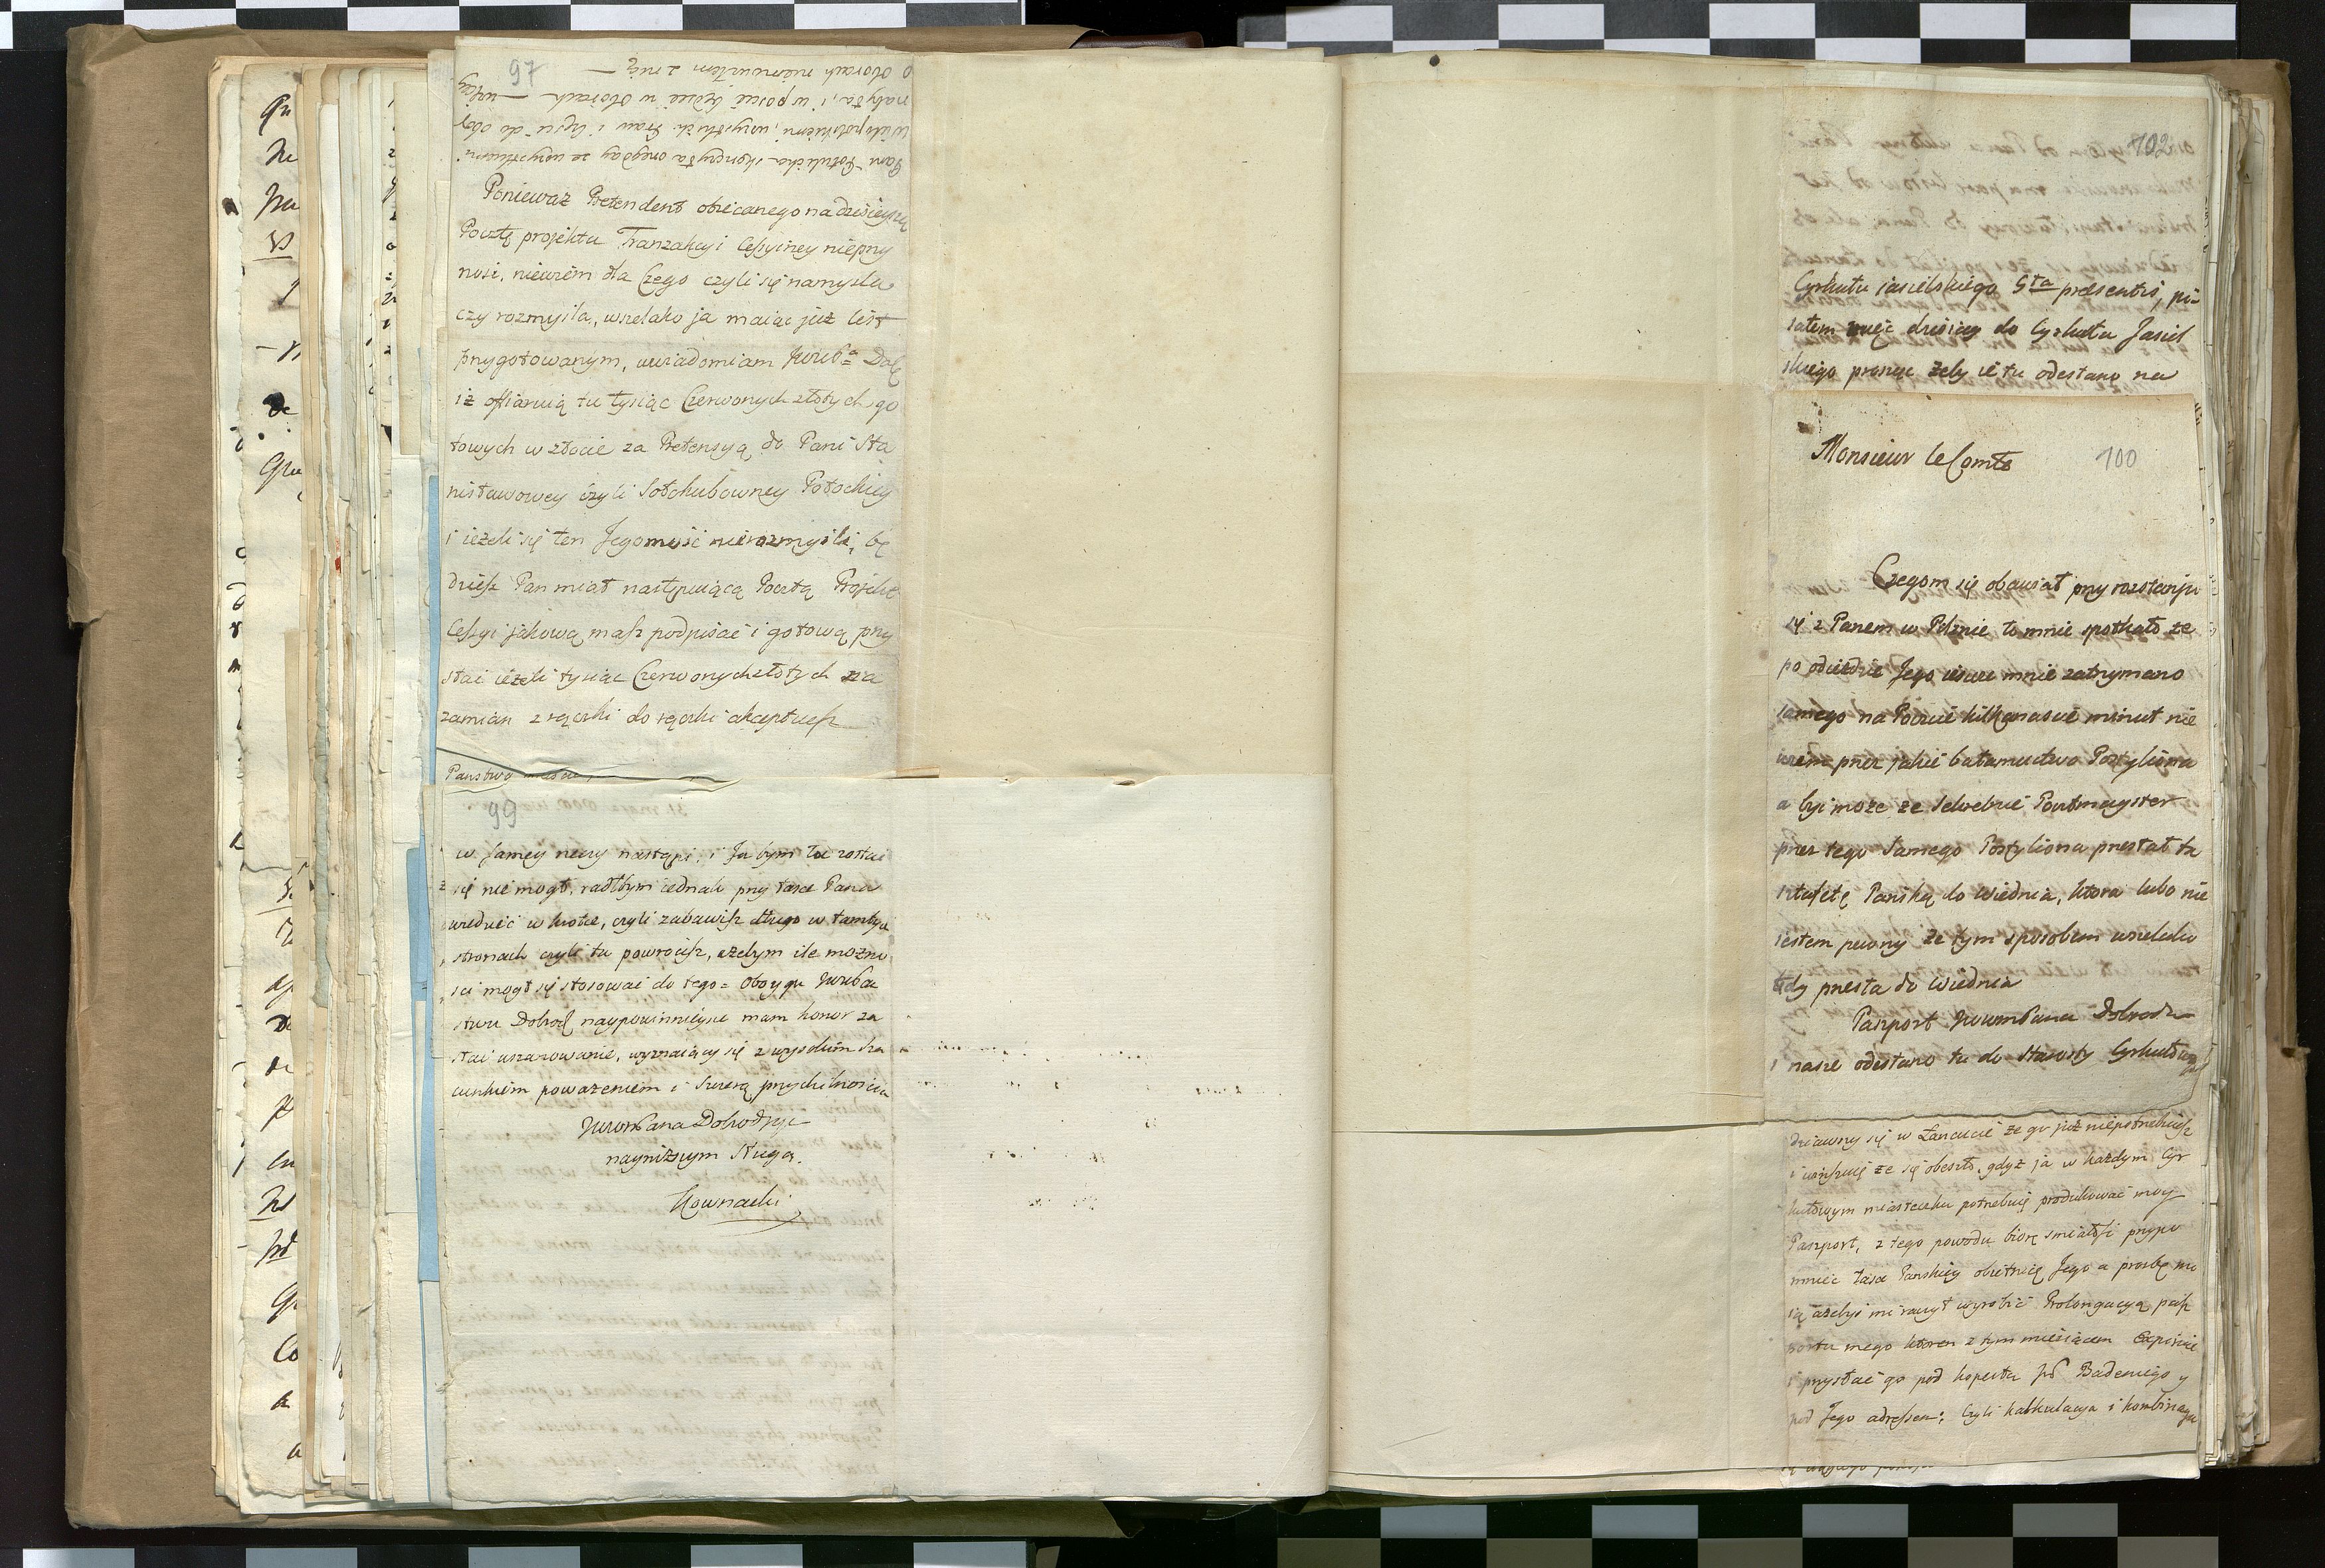 97
o oborach niemówiłem z nią
nabyła, i w poście będzie w oborach
Wielopolskiemi,
Pani Potulicka skończyła onegday ze wszystkiemi
Ponieważ Pretendent obiecanego na dzisieyszą
Pocztę projektu Tranzakcyi Cessyiney nieprzy
nosi, niewiem dla Czego czyli się namyśla
czy rozmyśla, wszelako ja maiąc już list
przygotowanym, uwiadomiam
iż offiaruią tu tysiąc Czerwonych złotych go
towych w złocie za Pretensyą do Pani Sta
nisławowey czyli Sołohubowney Potockiey
i ieżeli się ten Jegomość nierozmyśli, bę
dziesz Pan miał następuiącą Pocztą Projekt
Cessyi jakową masz podpisać i gotową przy
słać ieżeli tysiąc Czerwonych złotych za
zamian z rączki do rączki akceptuiesz
Państwo
99
w samey rzeczy nastąpi, i Ja bym tu zostać
się nie mogł, radbym iednak przy łasce Pana
wiedzieć w krotce, czyli zabawisz długo w tamtych
stronach czyli tu powrocisz, ażebym ile możno
sci mogł się stosować do tego = Oboyga
stwu Dobrod naypowinnieysze mam honor za
słać uszanowanie, wyznaiący się z wysokim sza
cunkiem poważeniem i szczerą przychilnością
JWWPana Dobrodzieja
nayniższym Sługą.
Kownacki
102
Cyrkułu iasielskiego 5ta praesentis, pi-
sałem więc dzisiay do Cyrkułu Jasiel
skiego prosząc żeby ie tu odesłano na
Monsieur le Comte
100
Czegom się obawiał przy rozstaniu
się z Panem w Pilznie to mnie spotkało że
po odieździe Jego ieszcze mnie zatrzymano
samego na Poczcie kilkanascie minut nie
wiem przez jakie bałamuctwo Postyliona
a być może że Sekretnie Pocztmayster
przez tego samego Postyliona przesłał tę
sztafetę Pańską do Wiednia, ktora lubo nie
iestem pewny że tym sposobem wszelako
przeszła do Wiednia
Paszport JWWPana Dobrodz
i nasze odesłano tu do Starosty Cyrkułowego
dziawszy się w Łancucie że go już niepotrzebuiesz
i że się obeszło, gdyż ja w każdym Cyr
kułowym miasteczku potrzebuię produkować moy
Paszport, z tego powodu biorę smiałość przypo
mnieć łasce Pańskiey obietnicę Jego a prozbę mo
ią ażebyś mi raczył wyrobić Prolongacyą pasz
portu mego ktoren z tym miesiącem Expiruie
i przysłać go pod kopertą JP Badeniego y
pod Jego adressem; Czyli kalkulacya i kombinacya